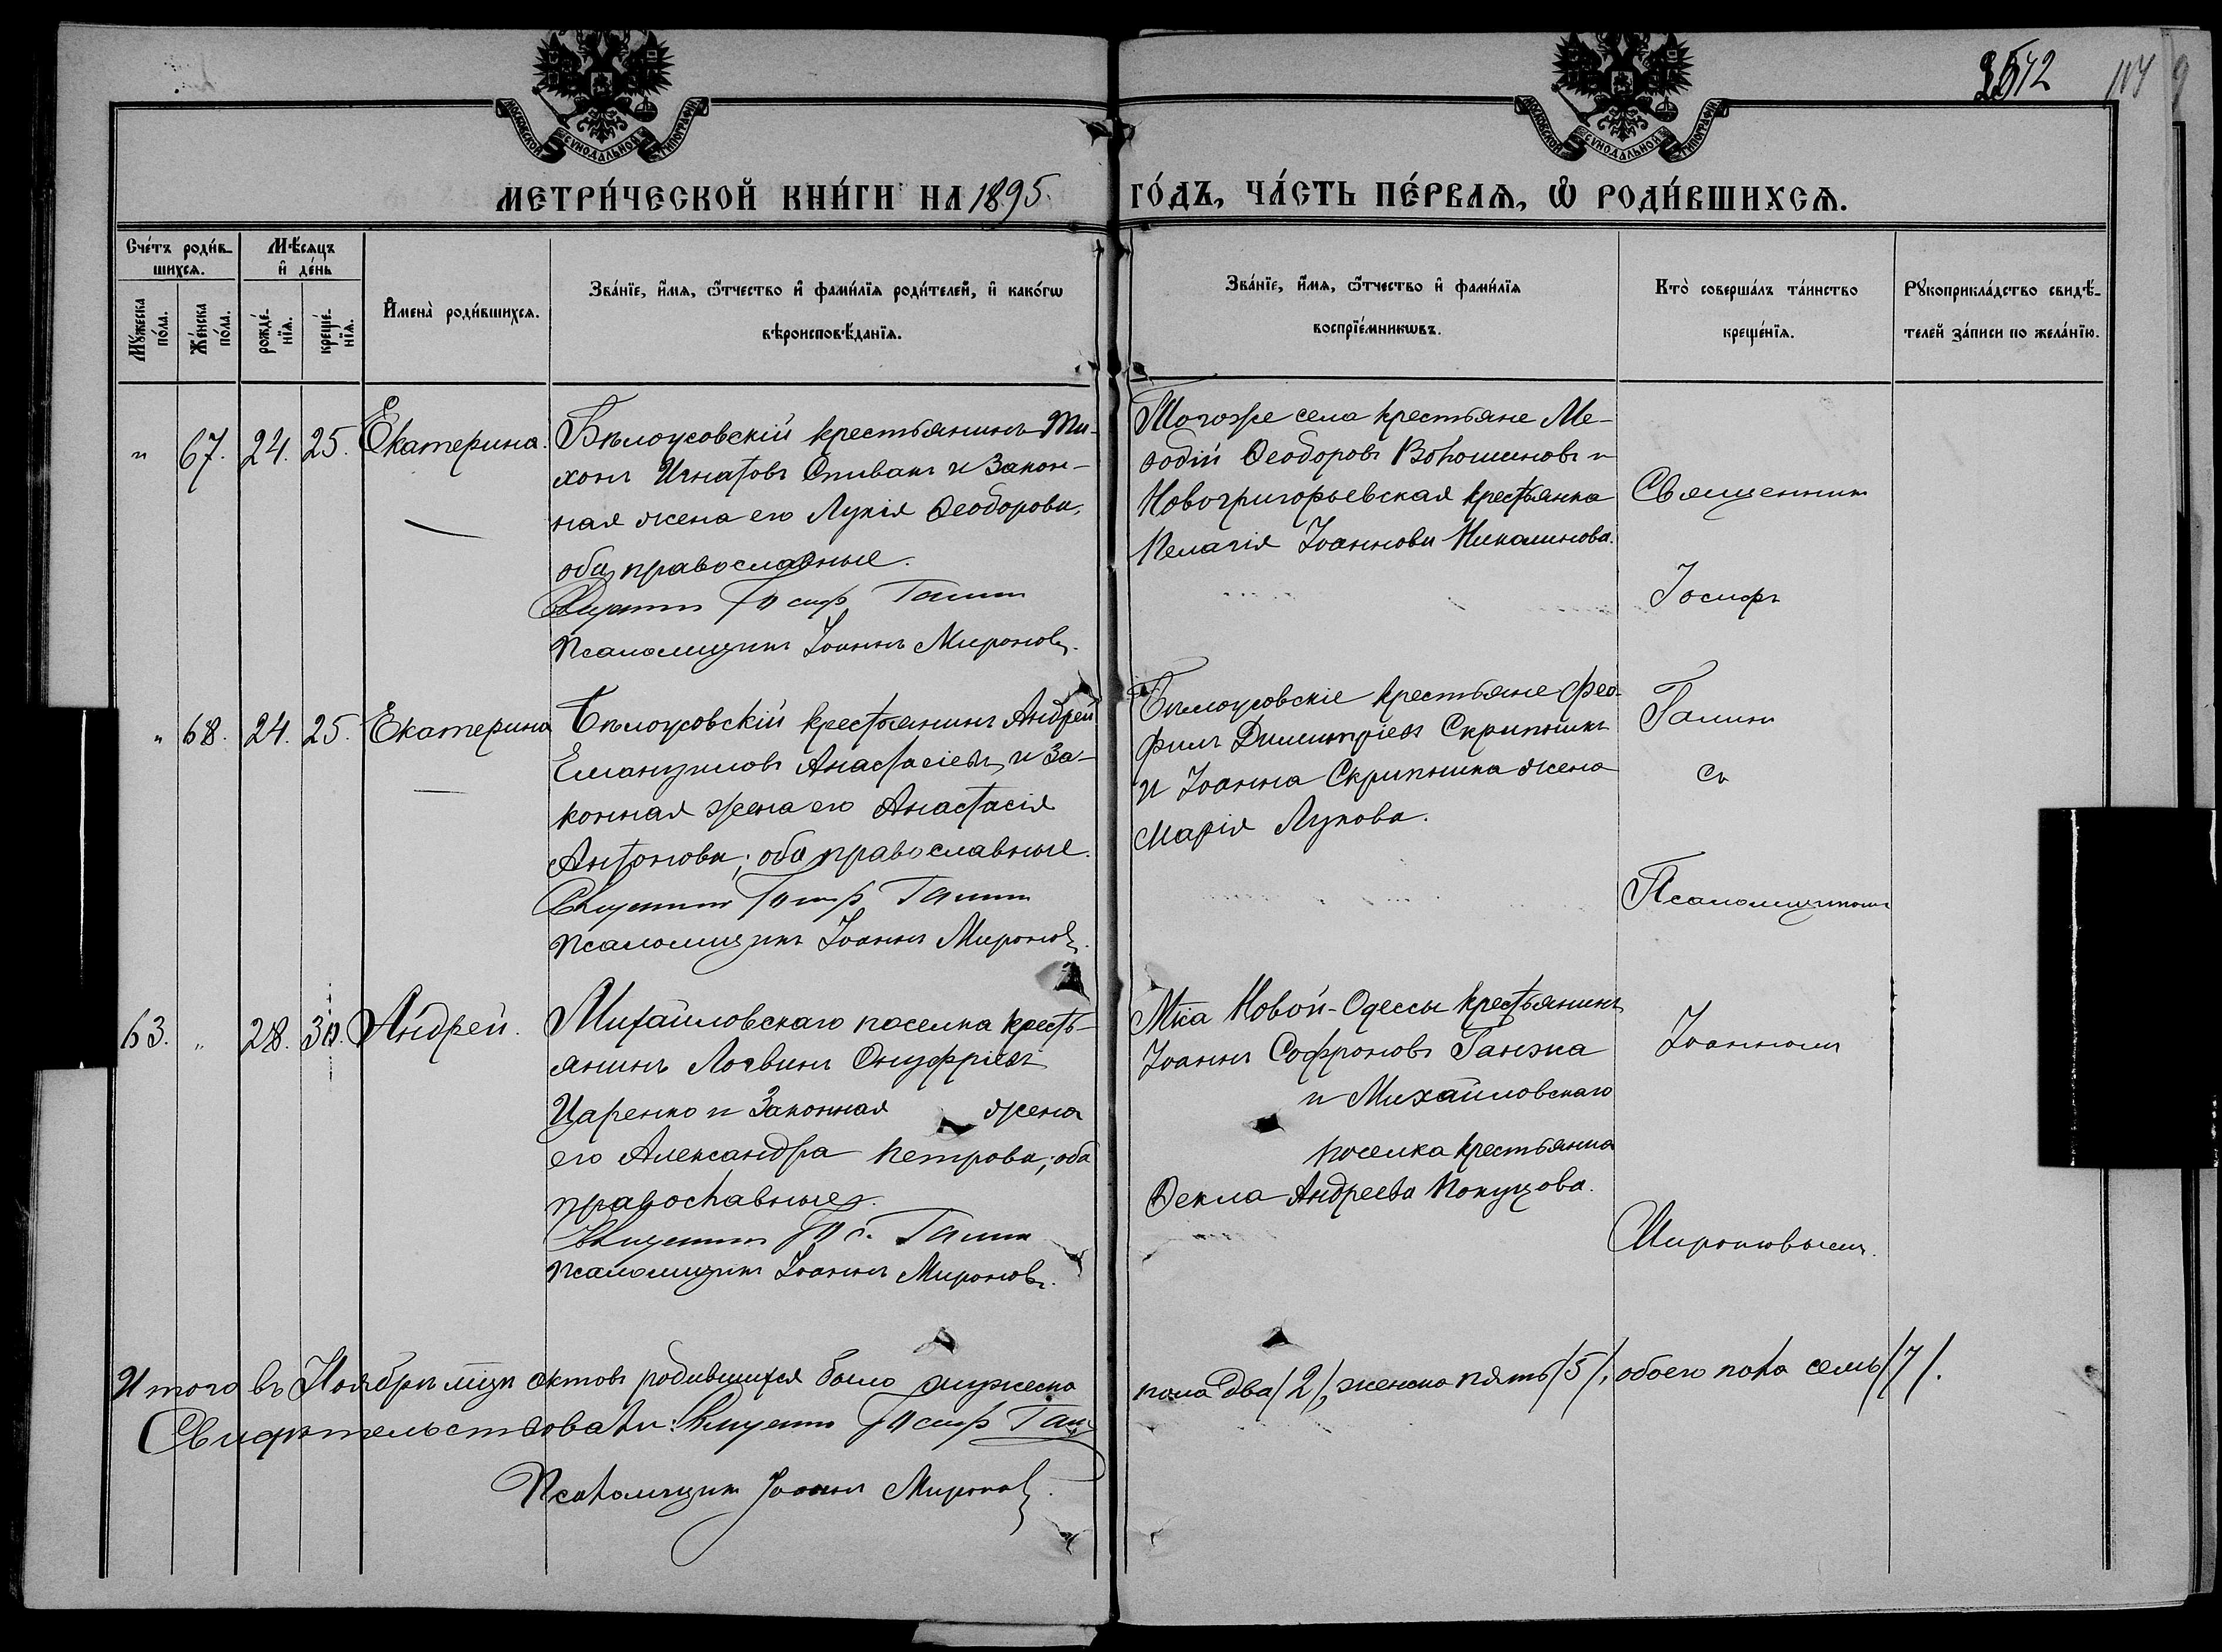 2542
114
МОСКОВСКОЙ СѴНОДАЛЬНОЙ ТИПОГРАФІИ
МОСКОВСКОЙ СѴНОДАЛЬНОЙ ТИПОГРАФІИ
МЕТРИ́ЧЕСКОЙ КНИ́ГИ НА 1895. ГО́ДЪ, ЧА́СТЬ ПЕ́РВАѦ, Ѡ҆ РОДИ́ВШИХСѦ.
Сче́тъ роди́в-
шихсѧ.
Мѣ́сѧцъ
и҆ де́нь
Мꙋ́жеска
по́ла.
Же́нска
по́ла.
рожде́-
нїѧ.
креще́-
нїѧ.
И҆мена̀ роди́вшихсѧ.
Зва́нїе, и҆́мѧ, ѻ҆́тчество и҆ фами́лїѧ роди́телей, и҆ како́гѡ
вѣроисповѣ́данїѧ.
Зва́нїе, и҆́мѧ, ѻ҆́тчество и҆ фами́лїѧ
воспрїе́мникѡвъ.
Кто̀ соверша́лъ та́инство
креще́нїѧ.
Рꙋкоприкла́дство свидѣ́-
телей за́писи по жела́нїю.
" 67. 24. 25. Екатерина.
Бѣлоусовскій крестьянинъ Ти-
хонъ Игнатовъ Спивакъ и закон-
ная жена его Лукія Ѳеодорова,
оба православные.
Священникъ Іосифъ Галинъ
Псаломщикъ Іоаннъ Мироновъ.
Тогоже села крестьяне Ме-
ѳодій Ѳеодоровъ Волошиновъ и
Новогригорьевская крестьянка
Пелагія Іоаннова Николинова.
Священникъ
Іосифъ
Галинъ
съ
Псаломщикомъ
Іоанномъ
Мироновымъ.
" 68. 24. 25. Екатерина
Бѣлоусовскій крестьянинъ Андрей
Емануиловъ Анастасіевъ и за-
конная жена его Анастасія
Антонова; оба православные.
Священникъ Іосифъ Галинъ
Псаломщикъ Іоаннъ Мироновъ.
Бѣлоусовскіе крестьяне Фео-
филъ Димитріевъ Скрипникъ
и Іоанна Скрипника жена
Марія Лукова.
63. " 28. 30. Андрей.
Михайловскаго поселка кресть-
янинъ Логвинъ Онуфріевъ
Царенко и законная жена
его Александра Петрова; оба
православные.
Священникъ Іос. Галинъ
Псаломщикъ Іоаннъ Мироновъ.
М-ка Новой-Одессы крестьянинъ
Іоаннъ Софроновъ Ганжа
и Михайловскаго
поселка крестьянка
Ѳекла Андреева
Итого въ Ноябрѣ м-цѣ актовъ родившихся было мужеска пола два /2/, женска пять /5/, обоего пола семь /7/.
Свидѣтельствовали: Священникъ Іосифъ Галинъ
Псаломщикъ Іоаннъ Мироновъ.